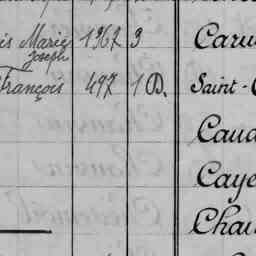 is Marie 1367 3 Caru
Joseph
François 497 1 D. Saint-
Caud
Caye
Chau